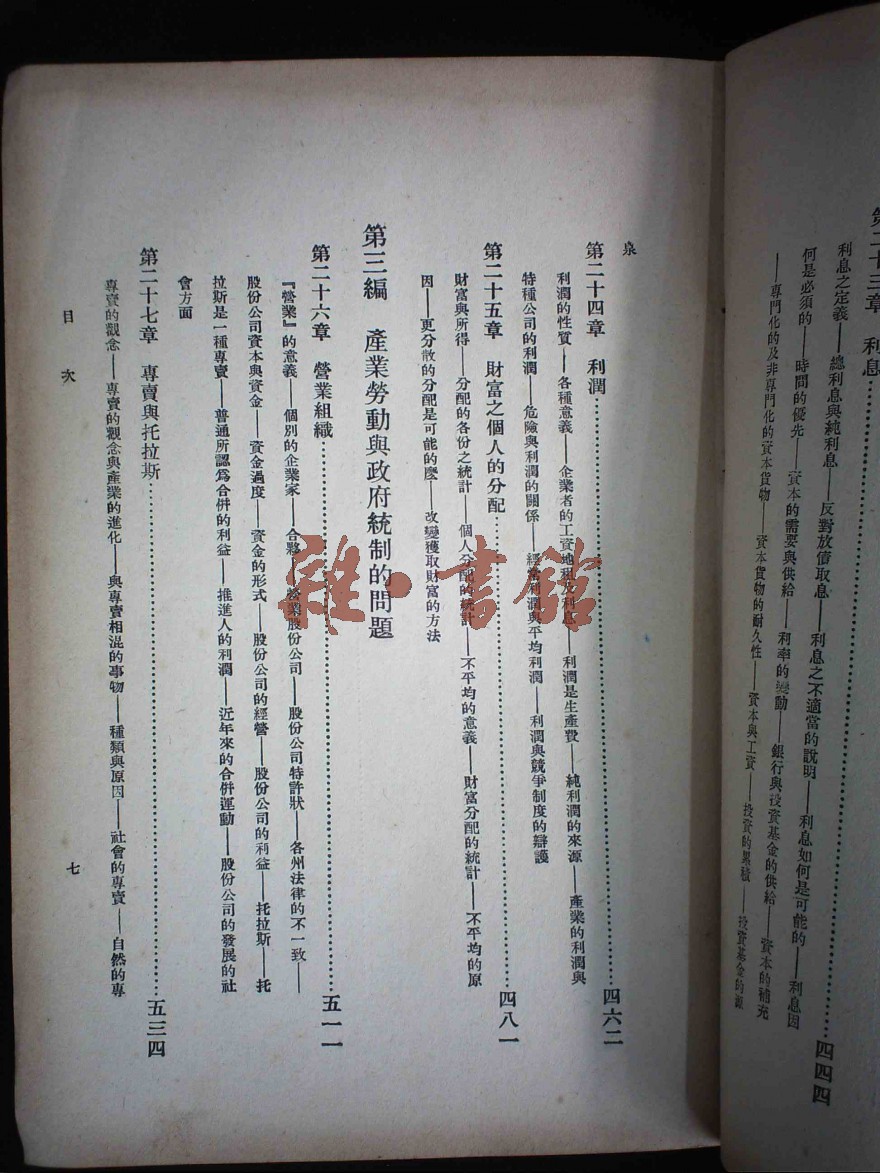 第二十三章　利息……………………四四四
利息之定義——總利息與純利息——反對放債取息——利息之不適當的說明——利息如何是可能的——利息因
何是必須的——時間的優先——資本的需要與供給——利率的變動——銀行與投資基金的供給——資本的補充
——專門化的及非專門化的資本貨物——資本貨物的耐久性——資本與工資——投資的累積——投資基金的源
泉
第二十四章　利潤……………………四六二
利潤的性質——各種意義——企業者的工資地租及利息——利潤是生產費——純利潤的來源——產業的利潤與
特種公司的利潤——危險與利潤的關係——經常利潤與平均利潤——利潤與競爭制度的辯護
第二十五章　財富之個人的分配……………………四八一
財富與所得——分配的各份之統計——個人分配的統計——不平均的意義——財富分配的統計——不平均的原
因——更分散的分配是可能的麼——改變獲取財富的方法
第三編　產業勞動與政府統制的問題
第二十六章　營業組織……………………五一一
『營業』的意義——個別的企業家——合夥——營業股份公司——股份公司特許狀——各州法律的不一致——
股份公司資本與資金——資金過度——資金的形式——股份公司的經營——股份公司的利益——托拉斯——托
拉斯是一種專賣——普通所認爲合併的利益——推進人的利潤——近年來的合併運動——股份公司的發展的社
會方面
第二十七章　專賣與托拉斯……………………五三四
專賣的觀念——專賣的觀念與產業的進化——與專賣相混的事物——種類與原因——社會的專賣——自然的專
目次
七
雜·書館